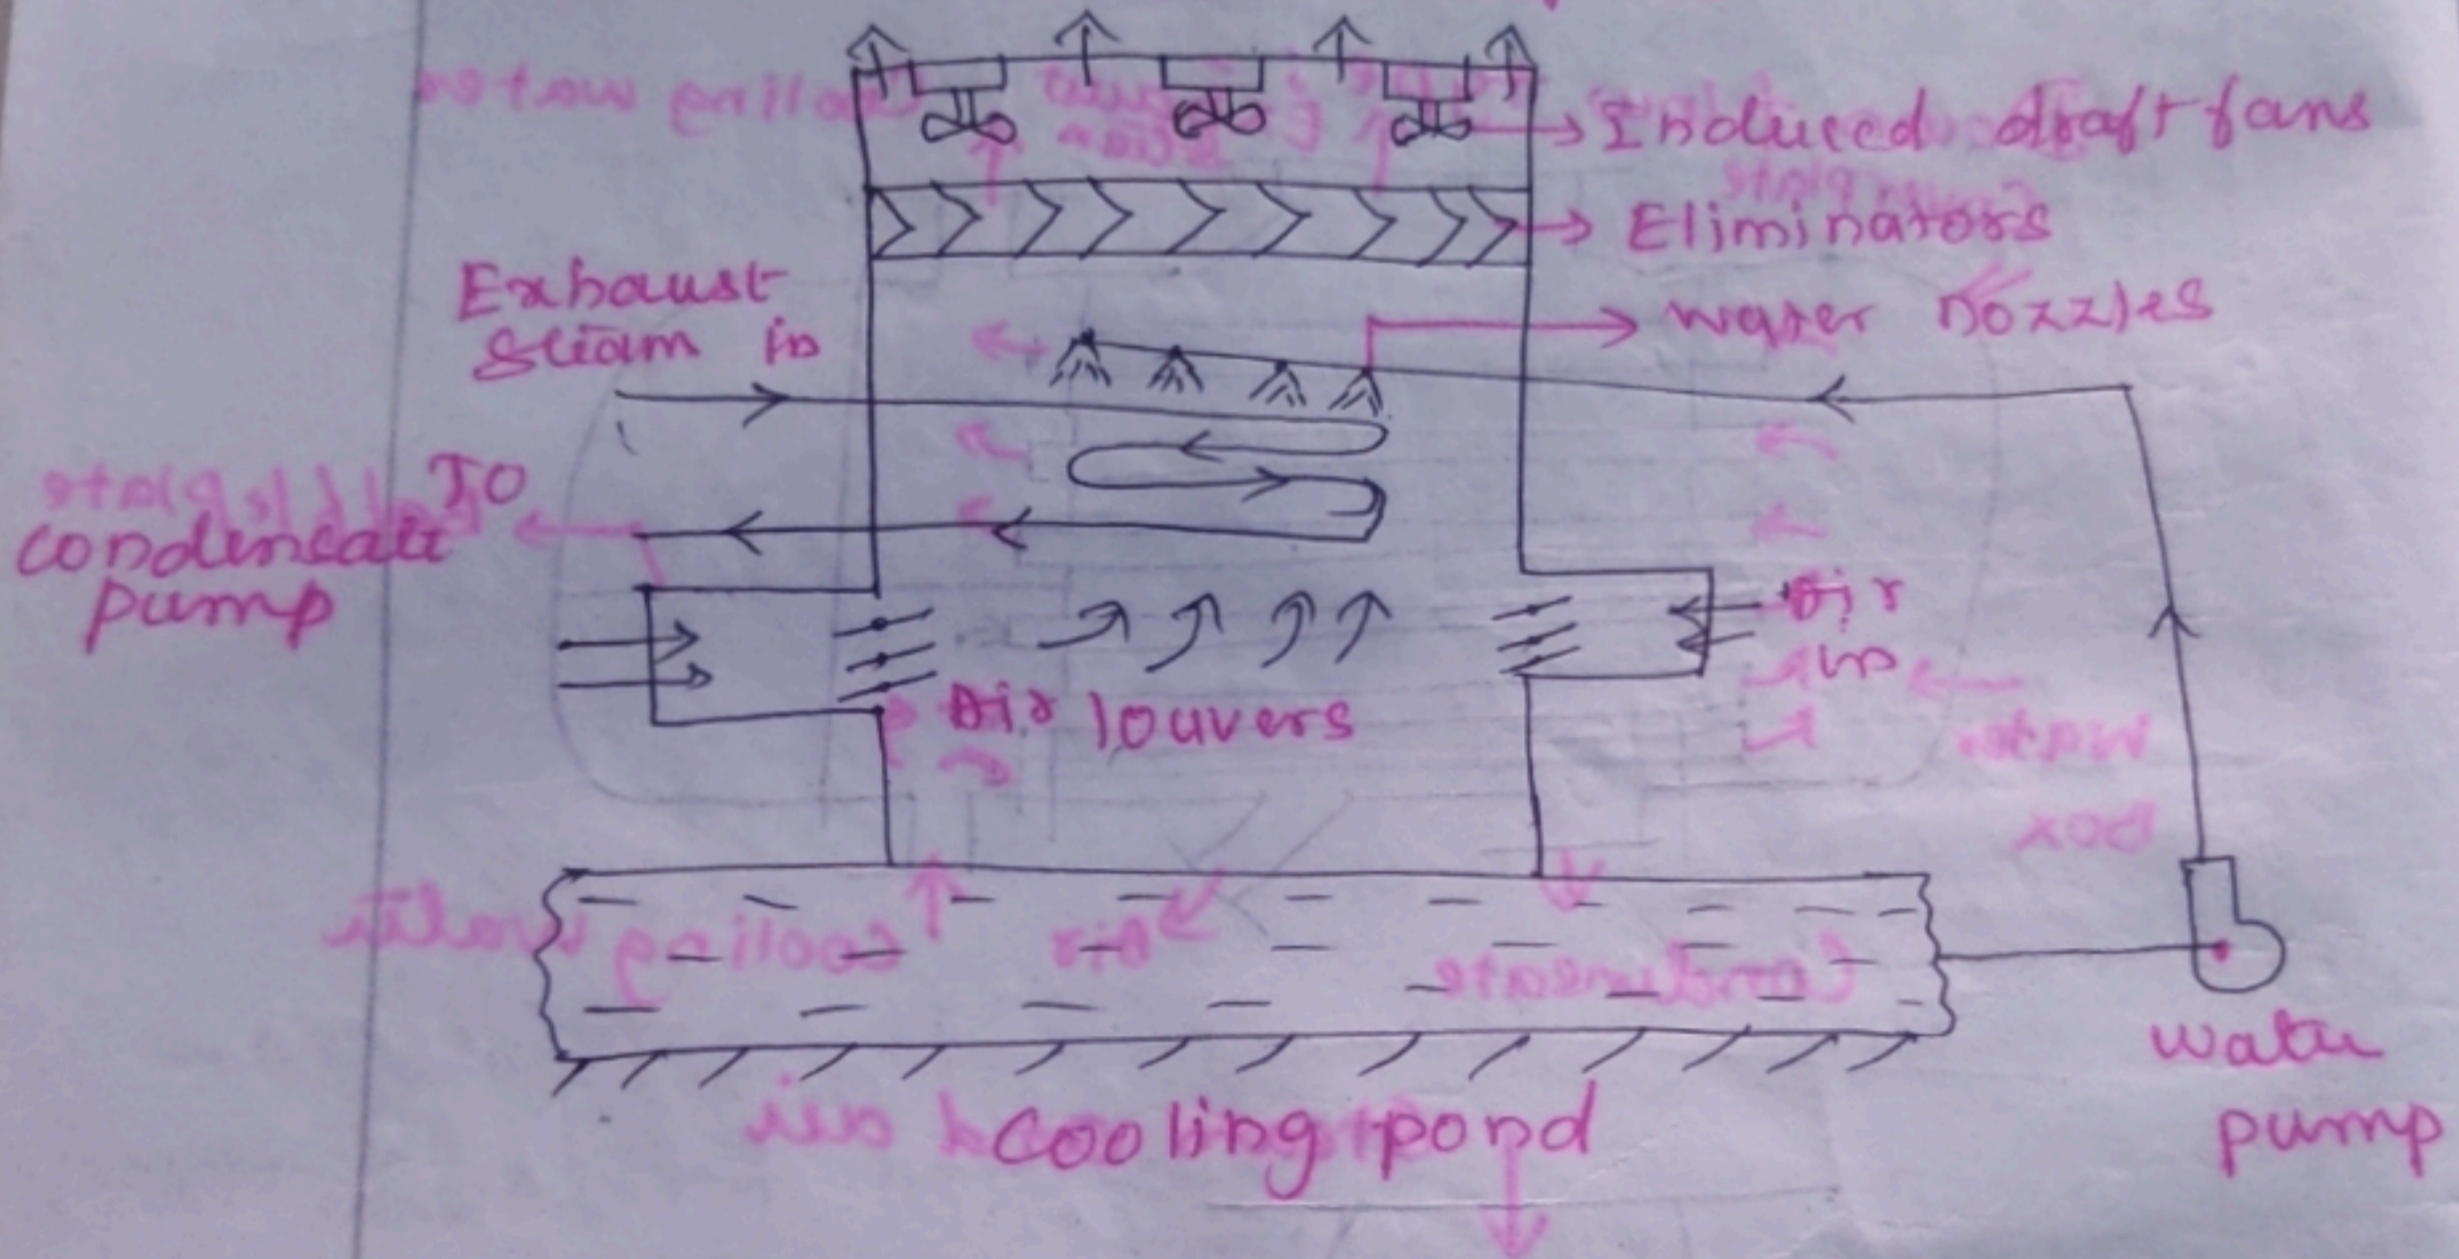 Induced draft fans
Eliminators
Exhaust
steam in
water nozzles
To
condensate
pump
Air
in
Air louvers
water
pump
cooling pond